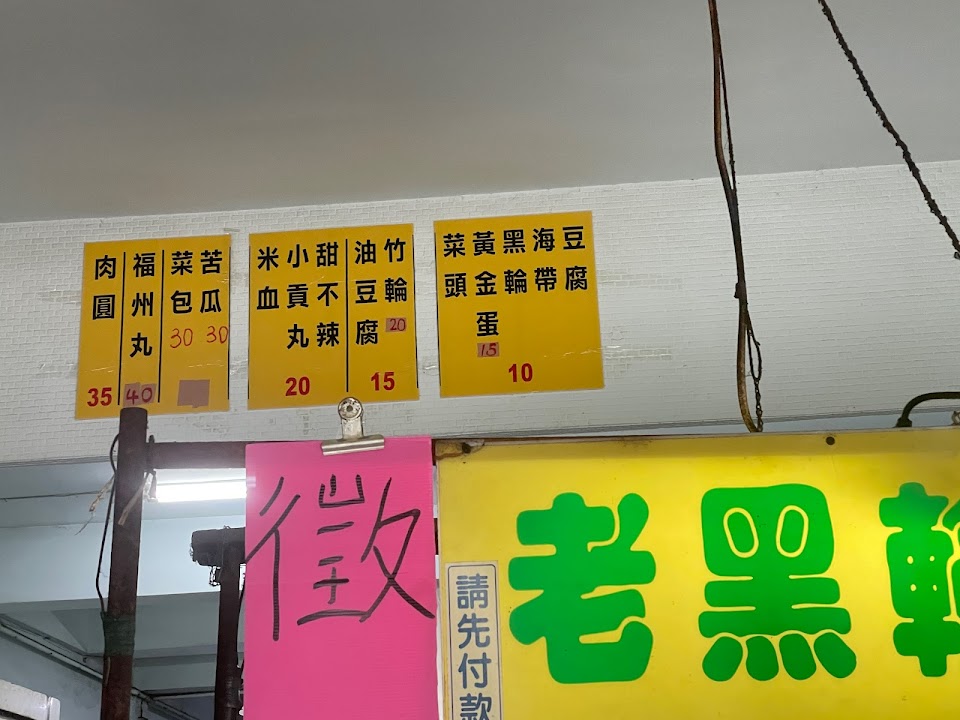 豆腐
海帶
黑輪
黃金蛋 15
菜頭
10
竹輪 20
油豆腐
15
甜不辣
小貢丸
米血
20
苦瓜 30
菜包 30
福州丸 40
肉圓 35
徵
請先付款
老黑輪